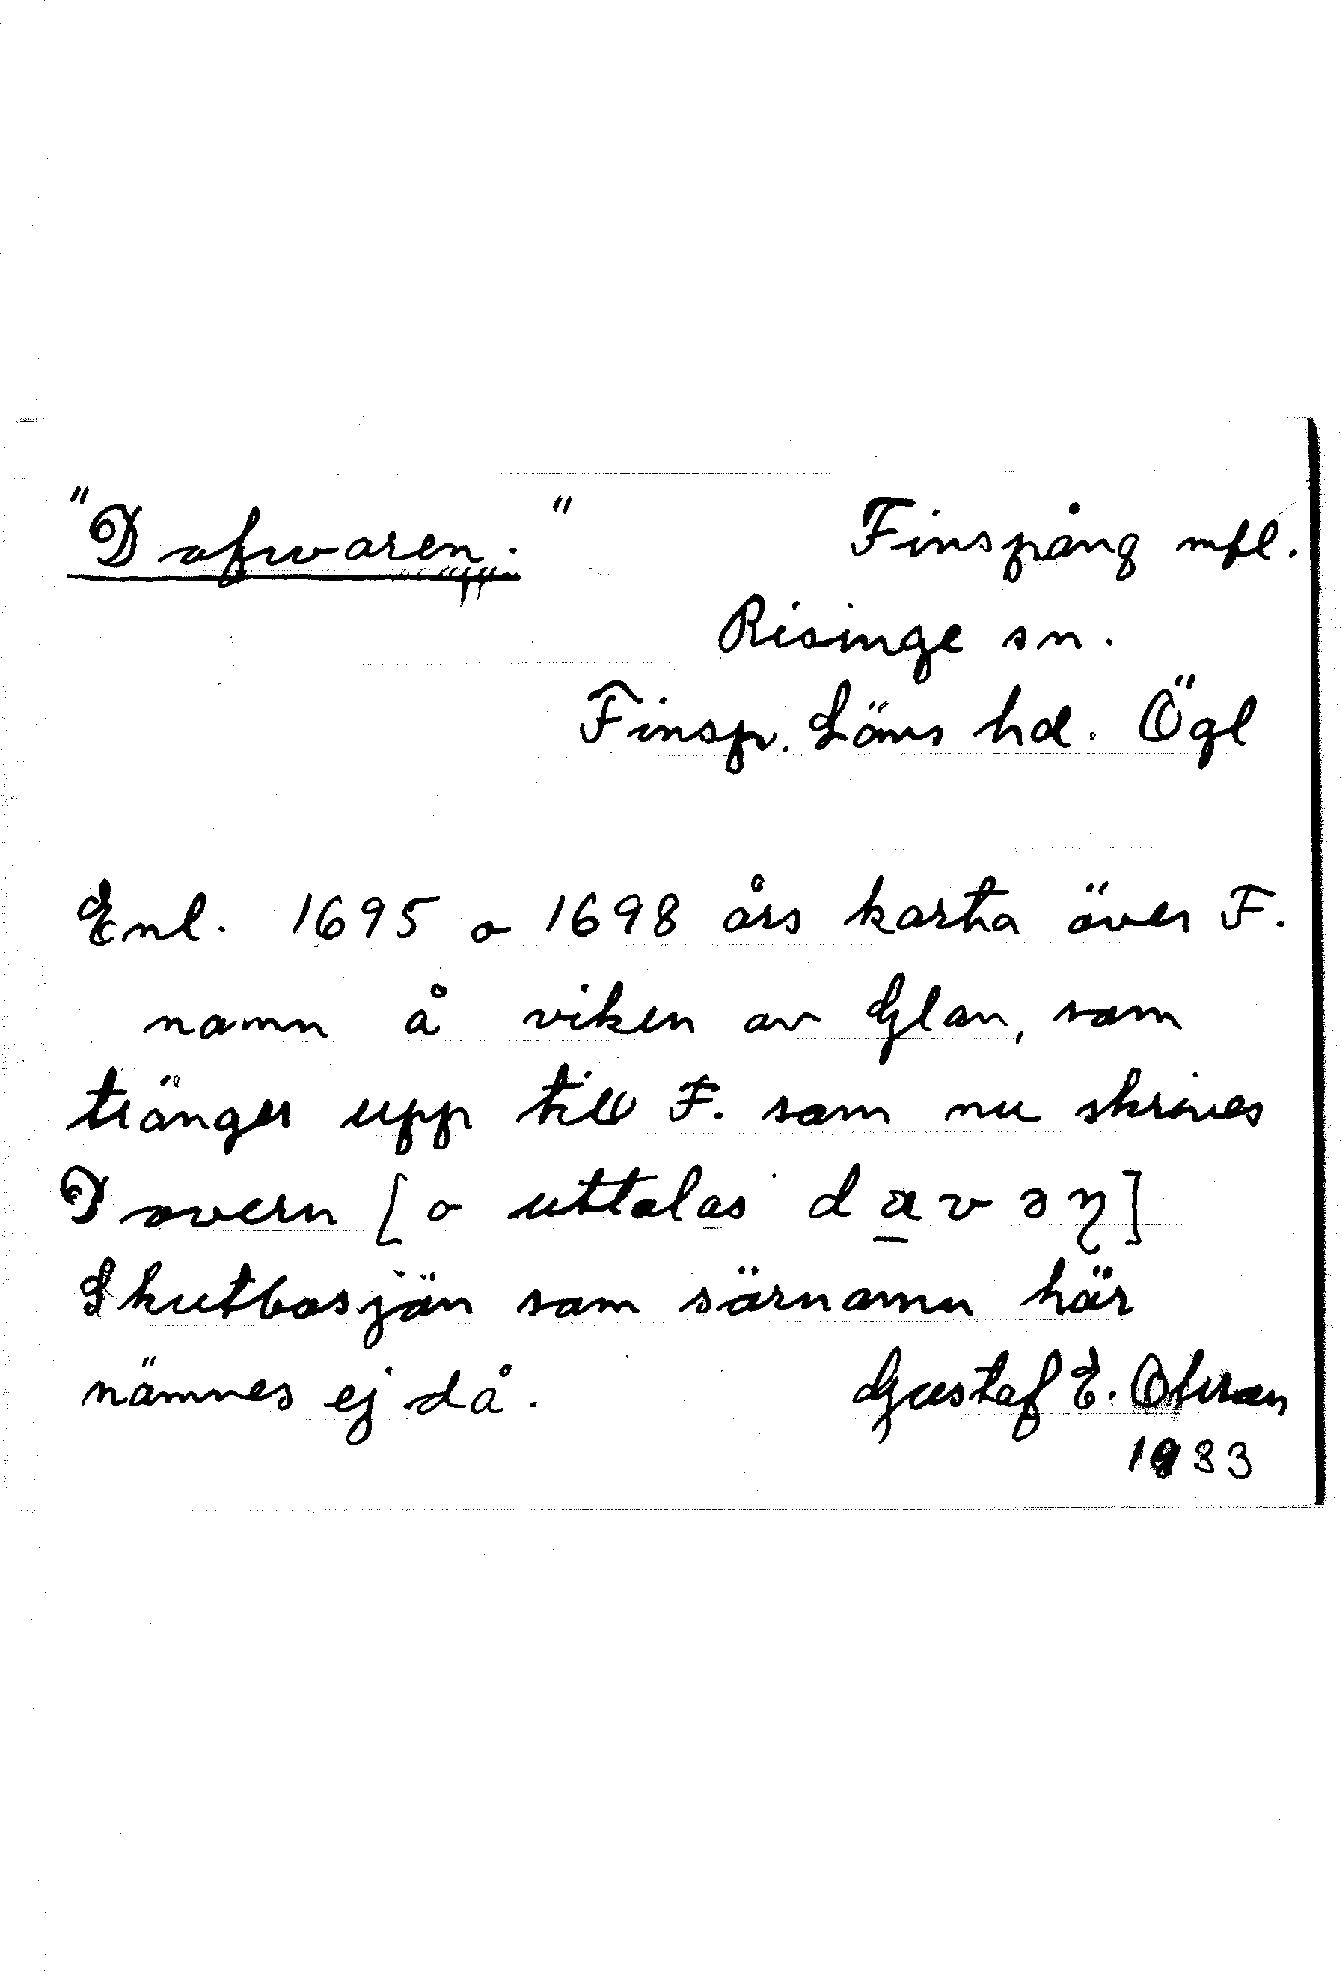 "Dafwaren."
Finspång mfl.
Risinge sn.
Finsp. Läns hd. Ögl
Enl. 1695 o 1698 års karta över F.
namn å viken av Glan, som
tränger upp till F. som nu skrives
Dovern [o uttalas d a v ə n̥]
Skutbosjön som särnamn här
nämnes ej då.
Gustaf E.
1933